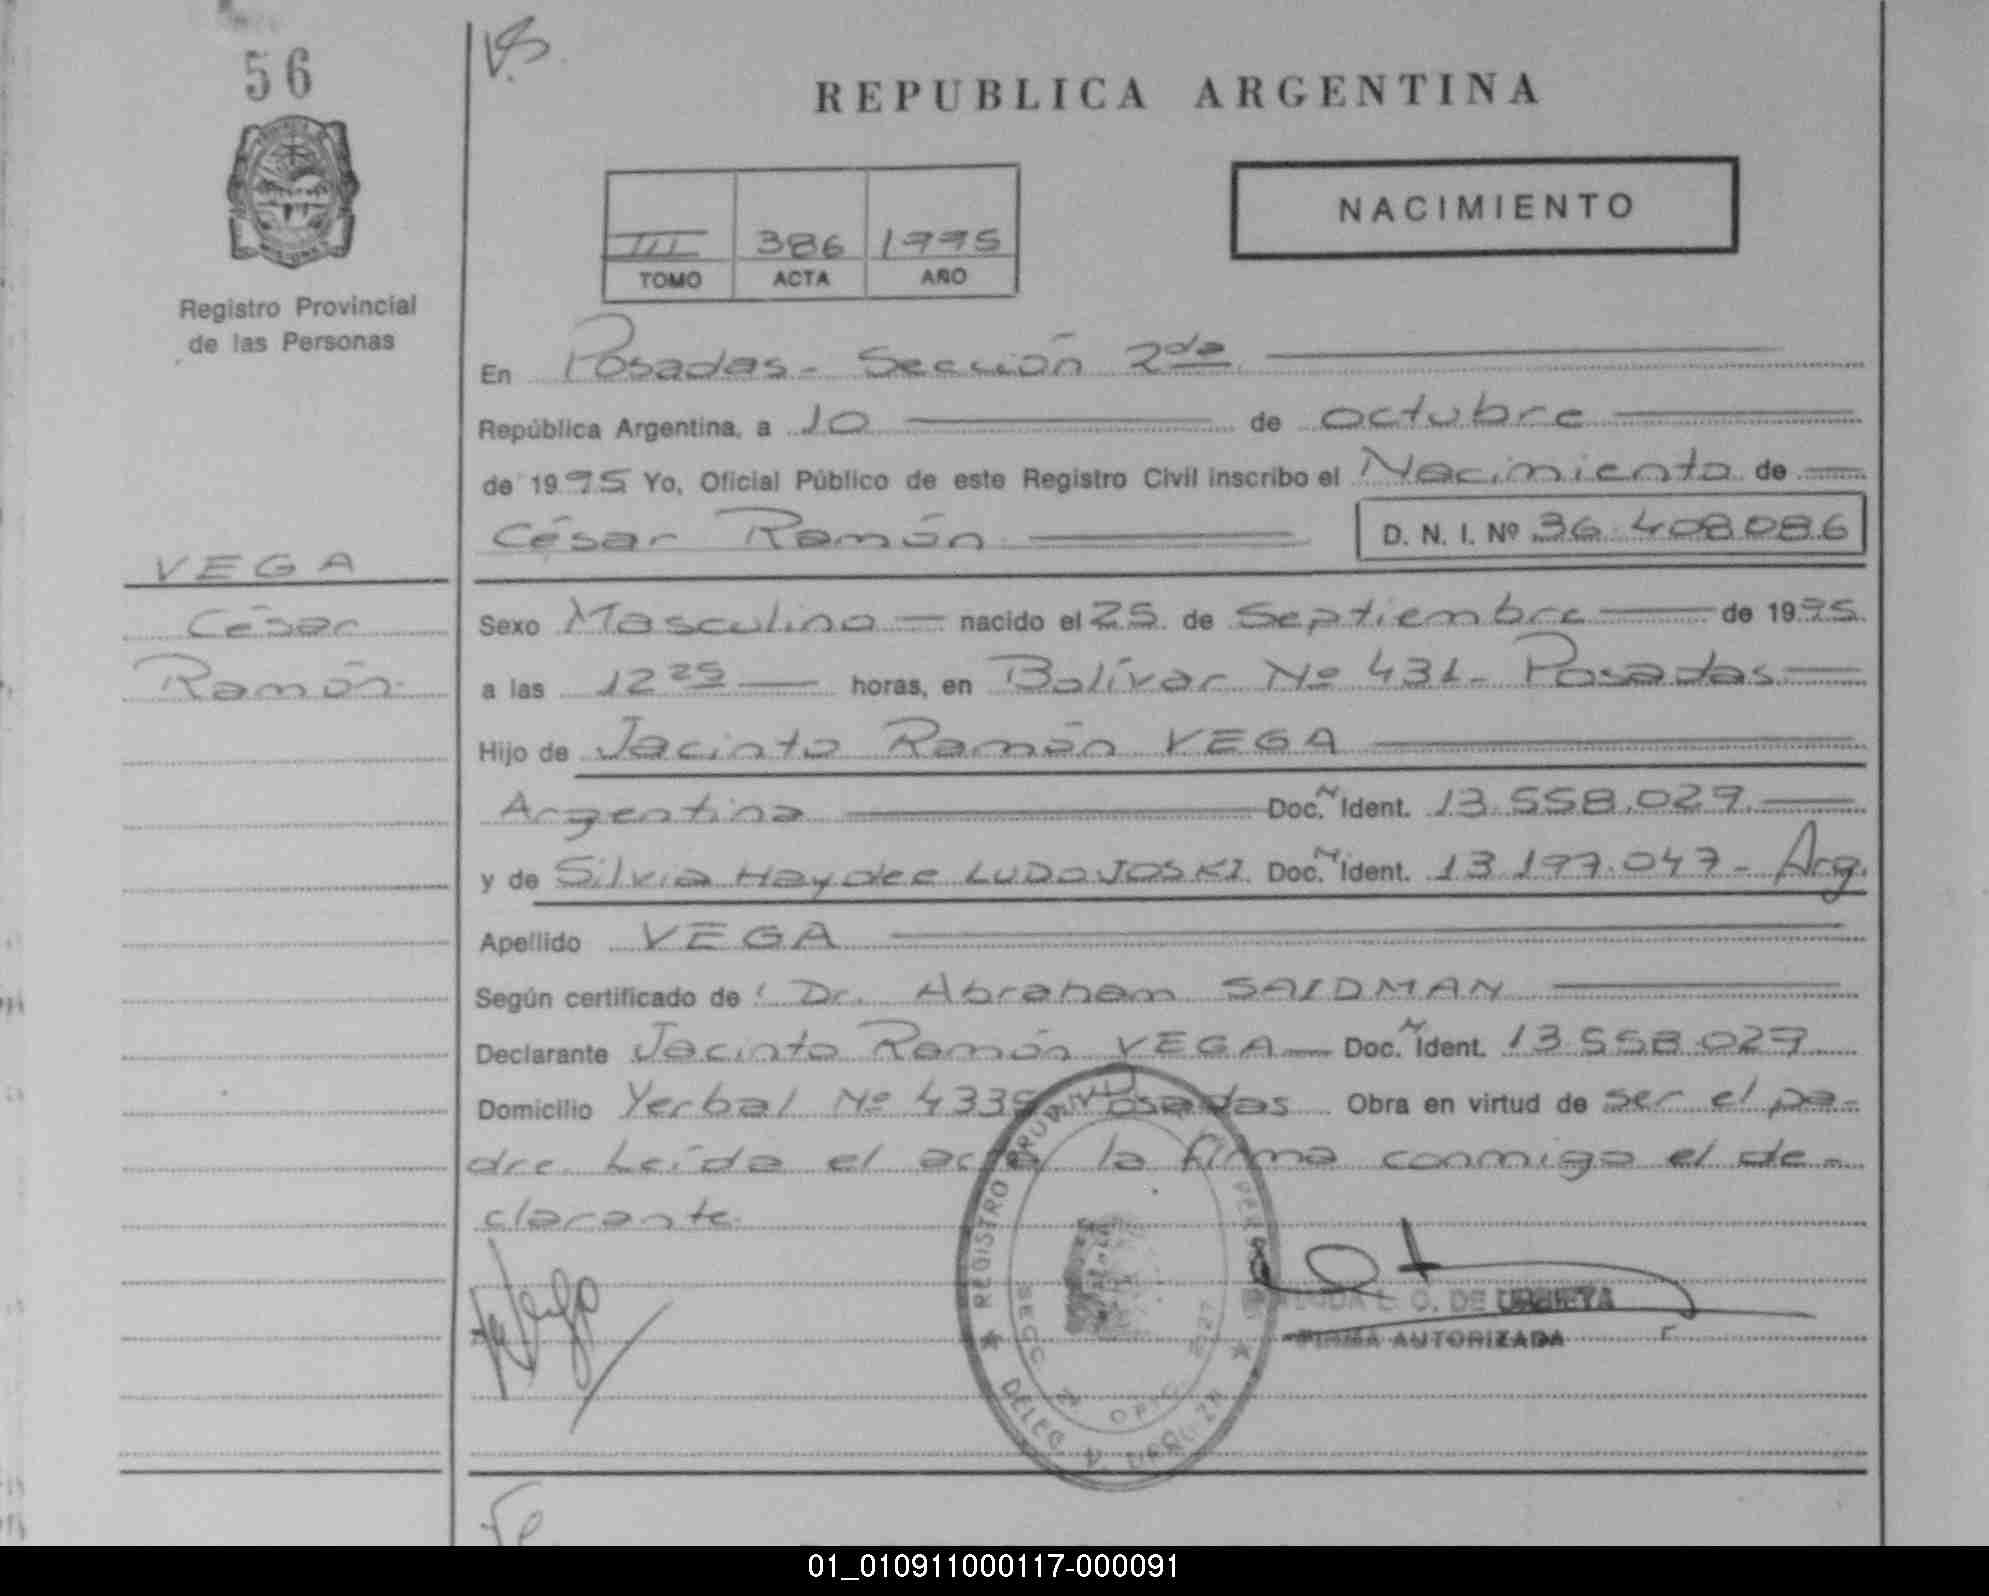 56
V.B.
REPUBLICA ARGENTINA
III 386 1995
TOMO ACTA AÑO
NACIMIENTO
Registro Provincial
de las Personas
En Posadas - Sección 2da
República Argentina, a 10 de octubre
de 1995 Yo, Oficial Público de este Registro Civil inscribo el Nacimiento de
César Ramón D. N. I. Nº 36.408.086
VEGA
César
Ramón
Sexo Masculino nacido el 25 de Septiembre de 1995
a las 12 25 horas, en Bolívar Nº 431 - Posadas
Hijo de Jacinto Ramón VEGA
Argentina Doc. N Ident. 13.558.029
y de Silvia Haydee LUDOJOSKI Doc. N Ident. 13.197.047 - Arg.
Apellido VEGA
Según certificado de: Dr. Abraham SAIDMAN
Declarante Jacinto Ramón VEGA Doc. N Ident. 13.558.029
Domicilio Yerbal Nº 4339 Posadas Obra en virtud de ser el pa-
dre. Leída el acta la firma conmigo el de-
clarante.
REGISTRO
SECC.
DELEG.
L. G. DE
FIRMA AUTORIZADA
01_010911000117-000091